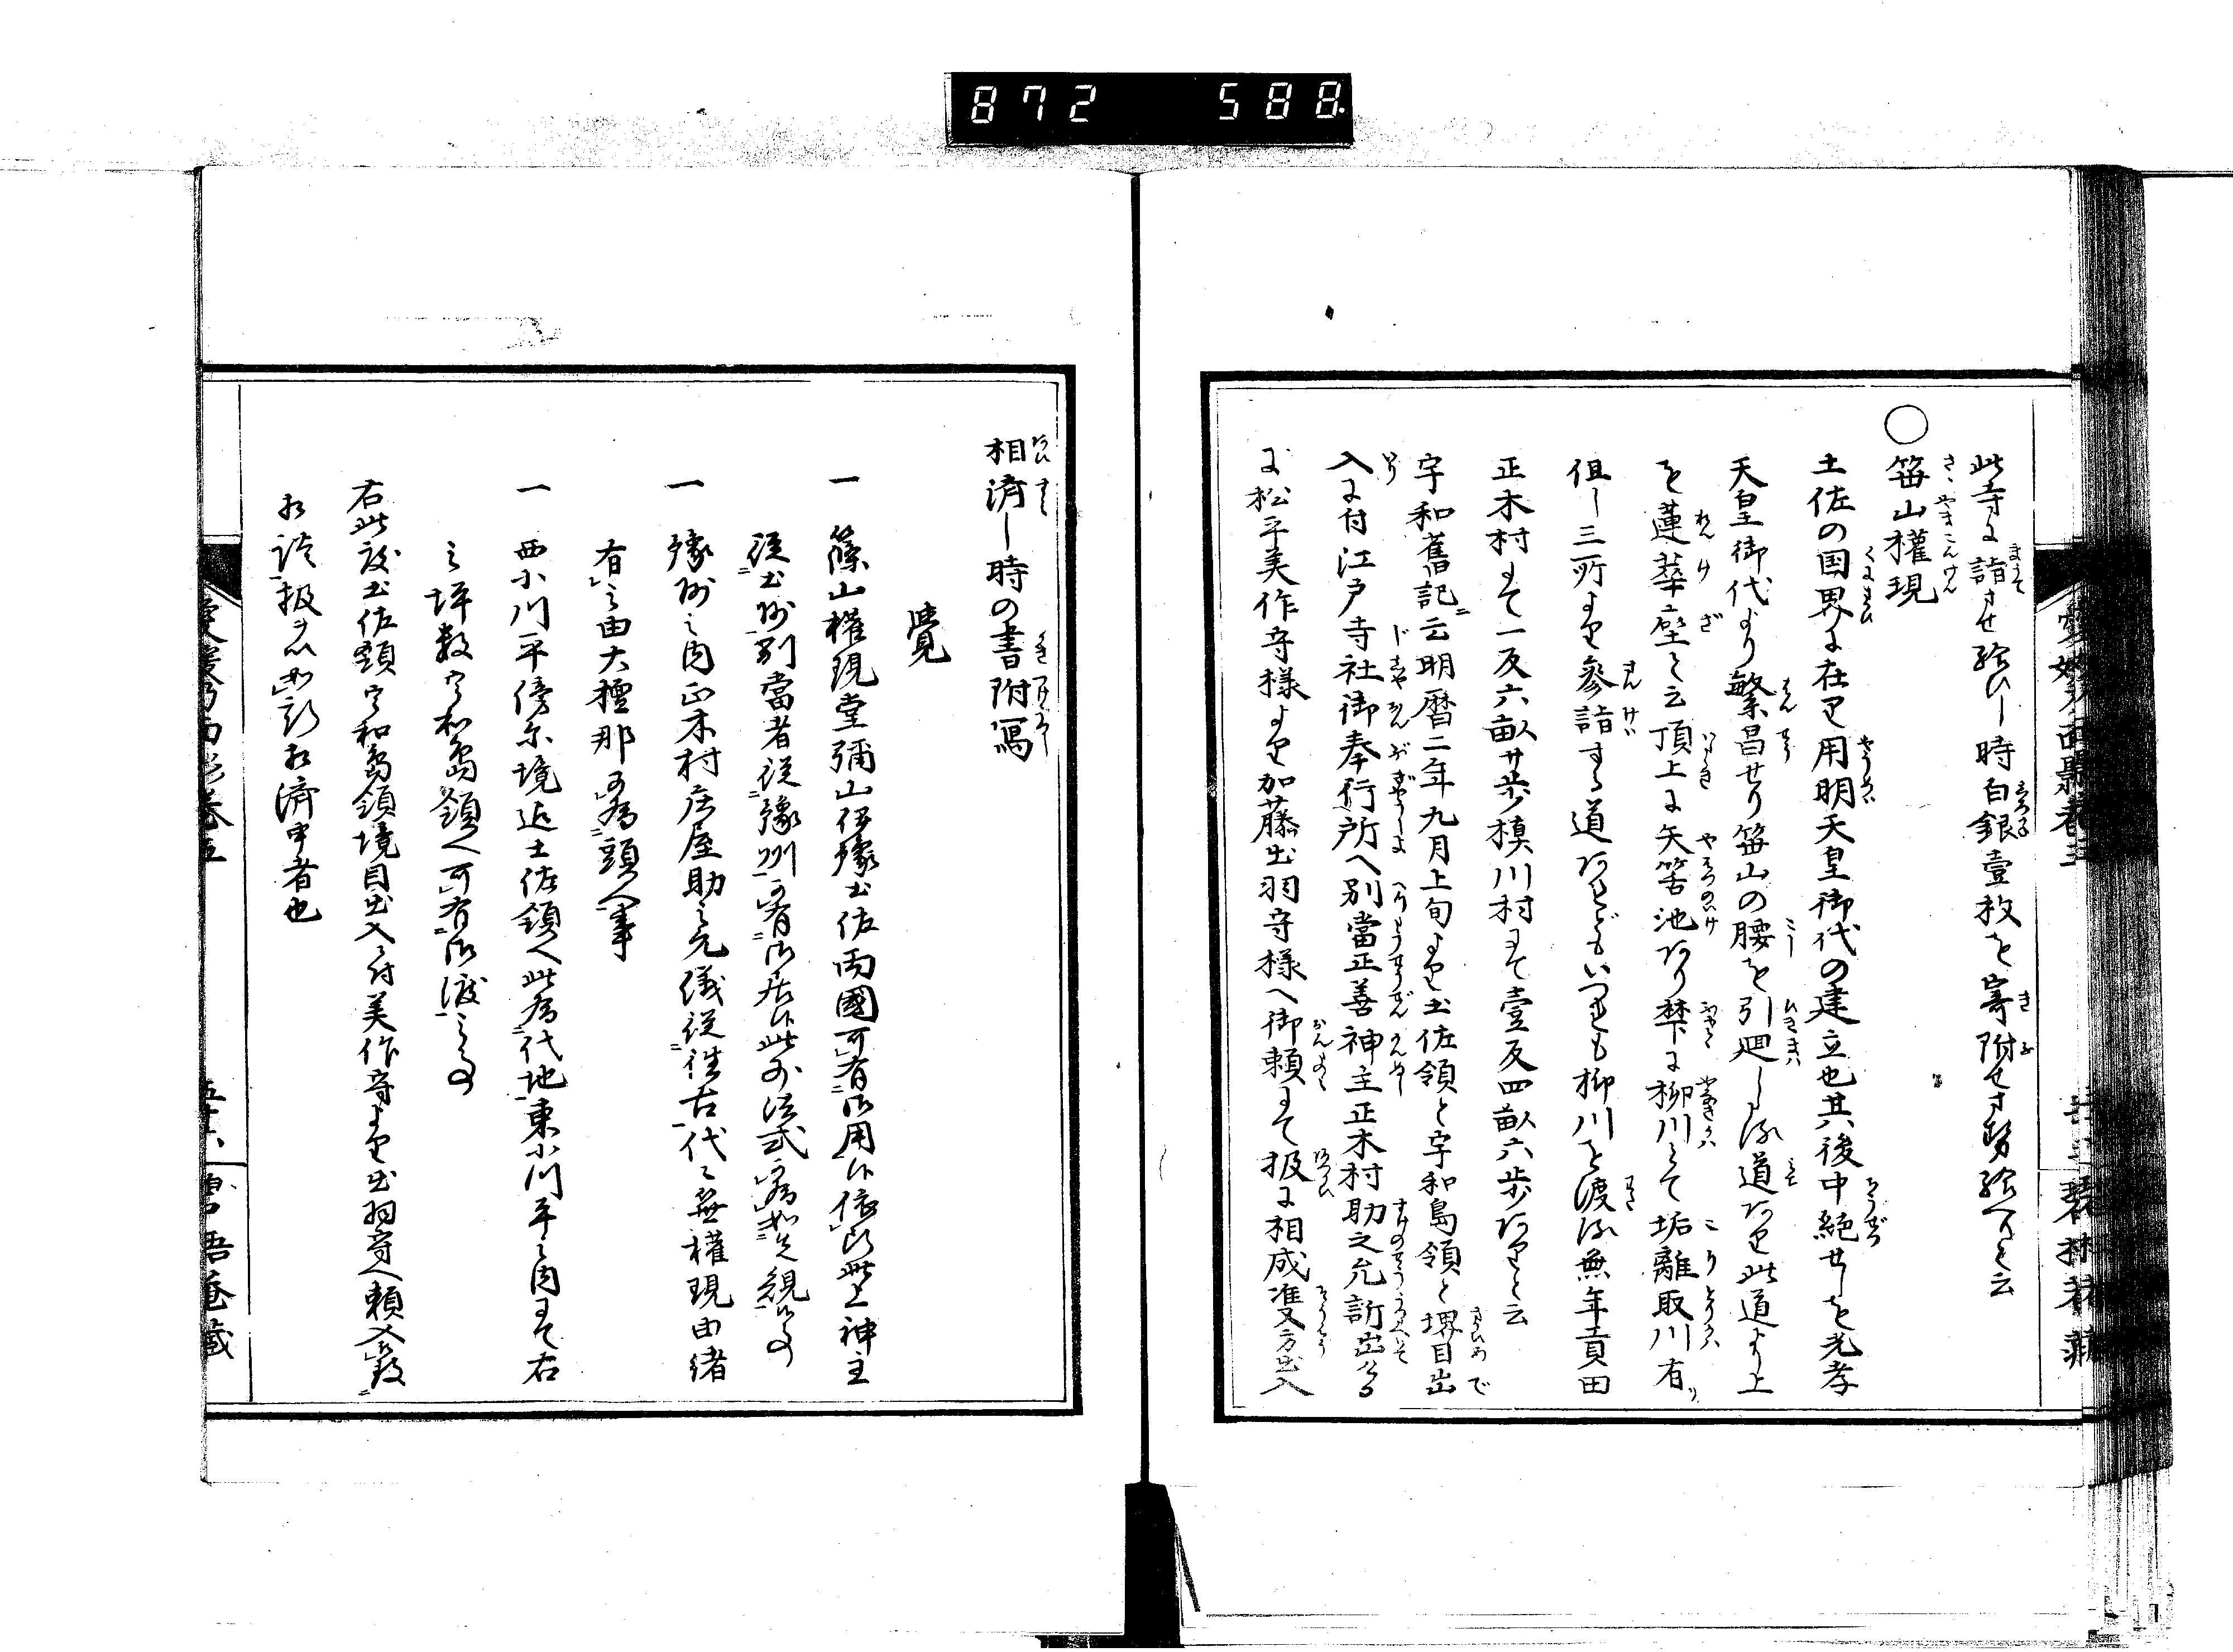 872 588
此寺に詣させ給ひし時白銀壹枚を寄附せさせ給へりと云
○笹山權現
土佐の国界に在り用明天皇御代の建立也其後中絶せしを光孝
天皇御代より繁昌せり笹山の腰を引廻しる道あり此道より上
を蓮華座と云頂上に矢筈池あり禁下に柳川とて垢離取川有リ
但し三所より參詣する道あれどもいつれも柳川を渡る無年貢田
正木村にて一反六畝廿歩槙川村にて壹反四畝六歩ありと云
宇和舊記ニ云明暦二年九月上旬より土佐領と宇和島領と堺目出
入に付江戸寺社御奉行所へ別當正善神主正木村助之允訴出ける
に松平美作守様より加藤出羽守様へ御頼にて扱に相成准双方出入
相済し時の書附寫
覺
一 篠山權現堂彌山伊豫土佐両國可有御用候依此上神主
從土州別當者從豫州可有御居候此外法式可為如先規候事
一 豫州之内正木村庄屋助之允儀從往古代々無權現由緒
有之由大檀那可為頭人事
一 西小川平傍示境迄土佐領へ此為代地東小川平之内にて右
之坪数宇和島領へ可有御渡之事
右此度土佐領宇和島領境目出入ニ付美作守より出羽守へ頼入候段
相談扱を以如斯相済申者也
愛媛乃面影巻五